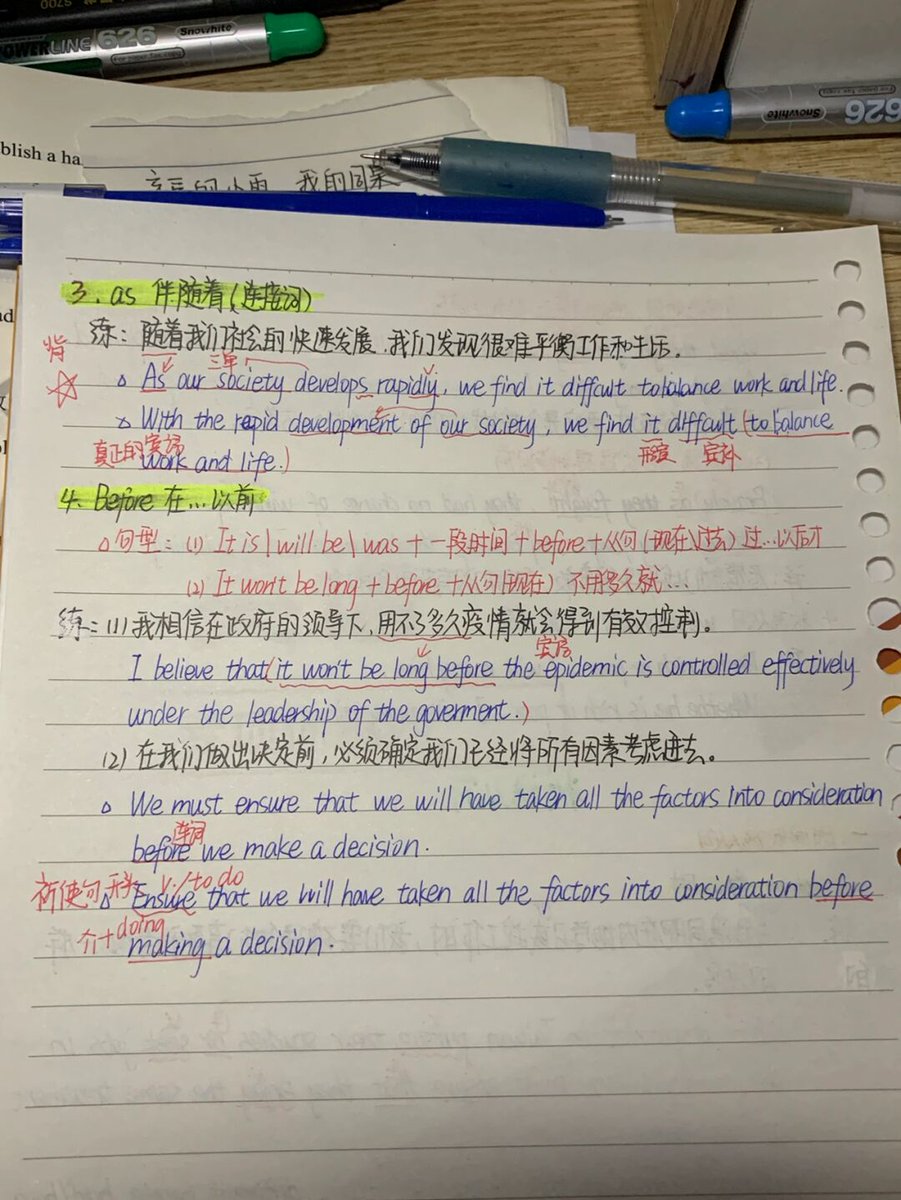 5700
POWERLINE 626 Snowhite
For paper fax copy
Snowhite 626
For paper fax copy
blish a ha
我的同桌
3. as 伴随着(连接词)
练: 随着我们社会的快速发展,我们发现很难平衡工作和生活.
背
三单
As our society develops rapidly, we find it diffcult to balance work and life.
With the rapid development of our society, we find it diffcult (to balance
真正的宾语
work and life.)
形宾 宾补
4. Before 在...以前
句型: (1) It is | will be | was + 一段时间 + before + 从句(现在\过去) 过...以后才
(2) It won't be long + before + 从句(现在) 不用多久就...
练: (1) 我相信在政府的领导下,用不了多久疫情就会得到有效控制.
宾语
I believe that (it won't be long before the epidemic is controlled effectively
under the leadership of the goverment.)
(2) 在我们做出决定前,必须确定我们已经将所有因素考虑进去。
We must ensure that we will have taken all the factors into consideration
连词
before we make a decision.
祈使句开头 v./to do
Ensure that we will have taken all the factors into consideration before
介+doing
making a decision.